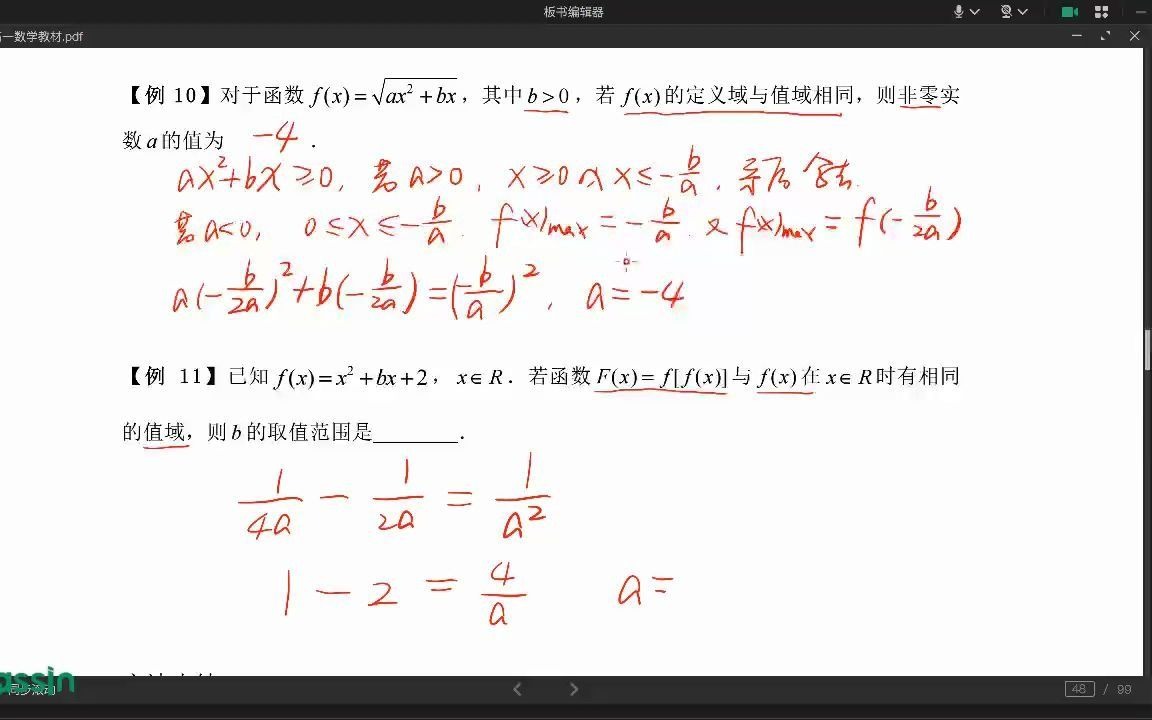 板书编辑器
一数学教材.pdf
【例 10】对于函数 f(x)=√(ax²+bx)，其中 b>0，若 f(x) 的定义域与值域相同，则非零实
数 a 的值为 -4 .
ax²+bx≥0, 若 a>0, x≥0 或 x≤-b/a, 矛盾 舍去.
若 a<0, 0≤x≤-b/a. f(x)max=-b/a. 又 f(x)max=f(-b/2a)
a(-b/2a)²+b(-b/2a)=(-b/a)², a=-4
【例 11】已知 f(x)=x²+bx+2，x∈R．若函数 F(x)=f[f(x)] 与 f(x) 在 x∈R 时有相同
的值域，则 b 的取值范围是________．
1/4a - 1/2a = 1/a²
1-2=4/a a=
assin
48 / 99